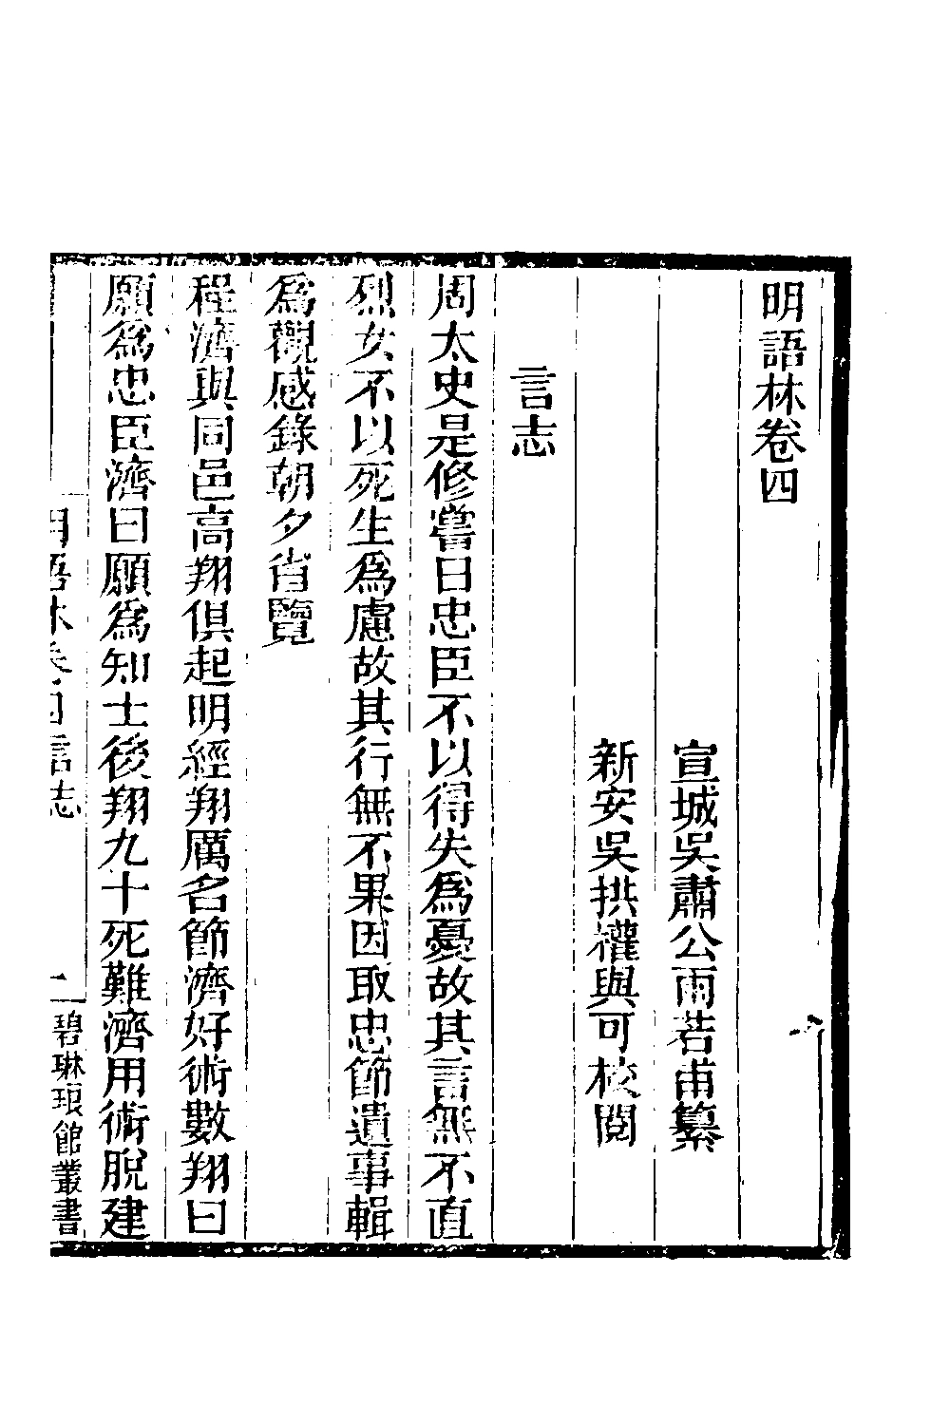 明語林卷四
宣城吳肅公雨若甫纂
新安吳拱權與可校閱
言志
周太史是修嘗曰忠臣不以得失爲憂故其言無不直
烈女不以死生爲慮故其行無不果因取忠節遺事輯
爲觀感錄朝夕省覽
程濟與同邑高翔俱起明經翔厲名節濟好術數翔曰
願爲忠臣濟曰願爲知士後翔九十死難濟用術脫建
明語林卷四言志
二
碧琳琅館叢書